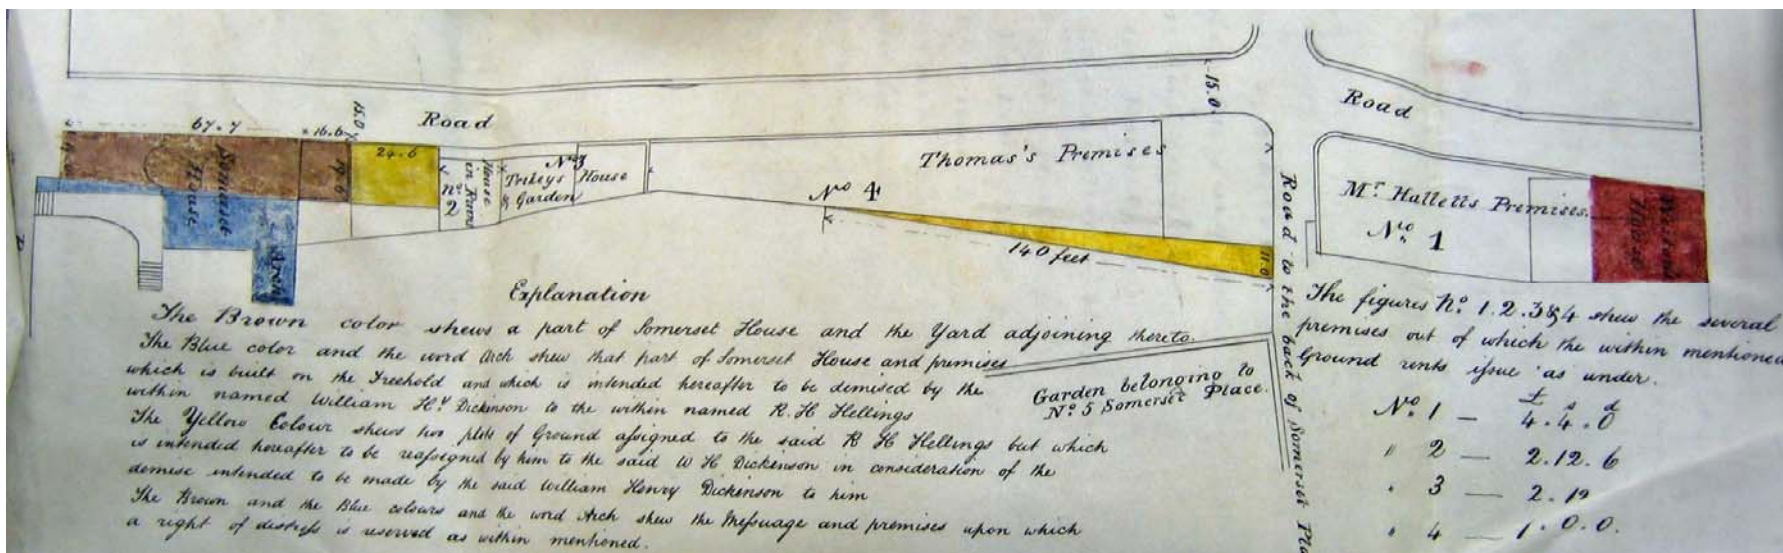 Road
15.0
Road
67.7
16.6
15.0
24.6
19.6
Somerset
House
Arch
No
2
House
in Ruins
No 3
Trikeys House
& Garden
No 4
Thomas's Premises
140 feet
11.0
Road to the back of Somerset Pla
Mr Halletts Premises.
No 1
House
Explanation
The Brown color shews a part of Somerset House and the Yard adjoining thereto.
The Blue color and the word Arch shew that part of Somerset House and premises
which is built on the Freehold and which is intended hereafter to be demised by the
within named William Hy Dickinson to the within named R. H Hellings
The Yellow Colour shews two plots of Ground assigned to the said R H Hellings but which
is intended hereafter to be reassigned by him to the said W H Dickenson in consideration of the
demise intended to be made by the said William Henry Dickenson to him
The Brown and the Blue colours and the word Arch shew the Messuage and premises upon which
a right of distress is reserved as within mentioned.
Garden belonging to
No 5 Somerset Place.
The figures No. 1. 2. 3 & 4 shew the several
premises out of which the within mentioned
Ground rents issue as under.
£ s d
No. 1 — 4. 4. 0
" 2 — 2. 12. 6
" 3 — 2. 12
" 4 — 1. 0. 0.